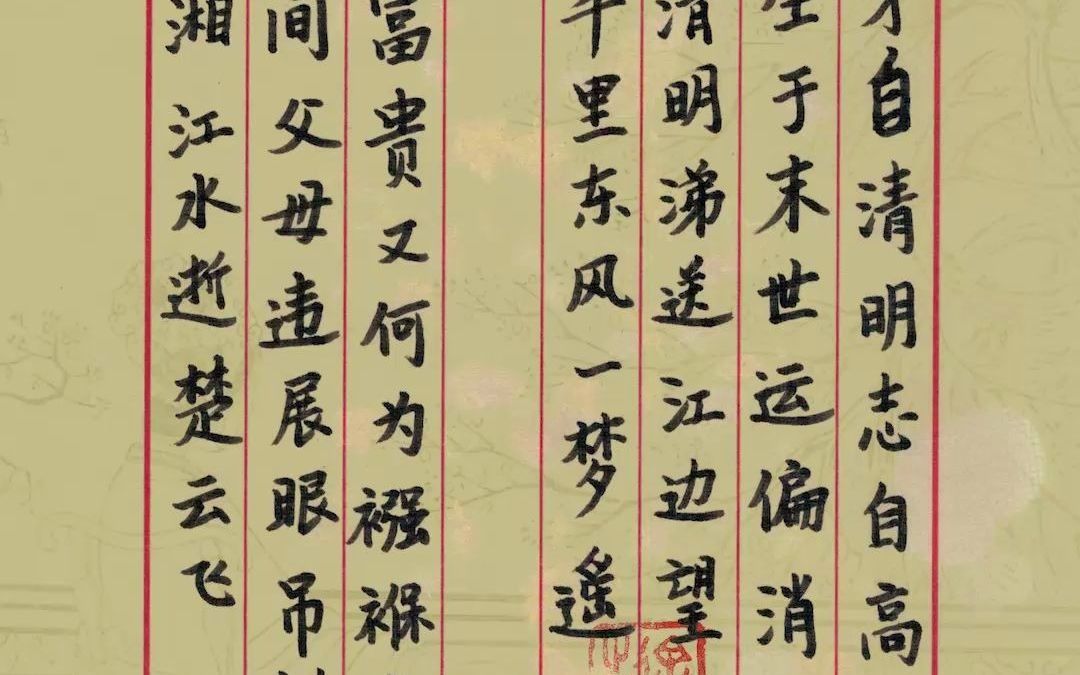 才自清明志自高
生于末世运偏消
清明涕送江边望
千里东风一梦遥
富贵又何为襁褓
间父母违展眼吊
湘江水逝楚云飞